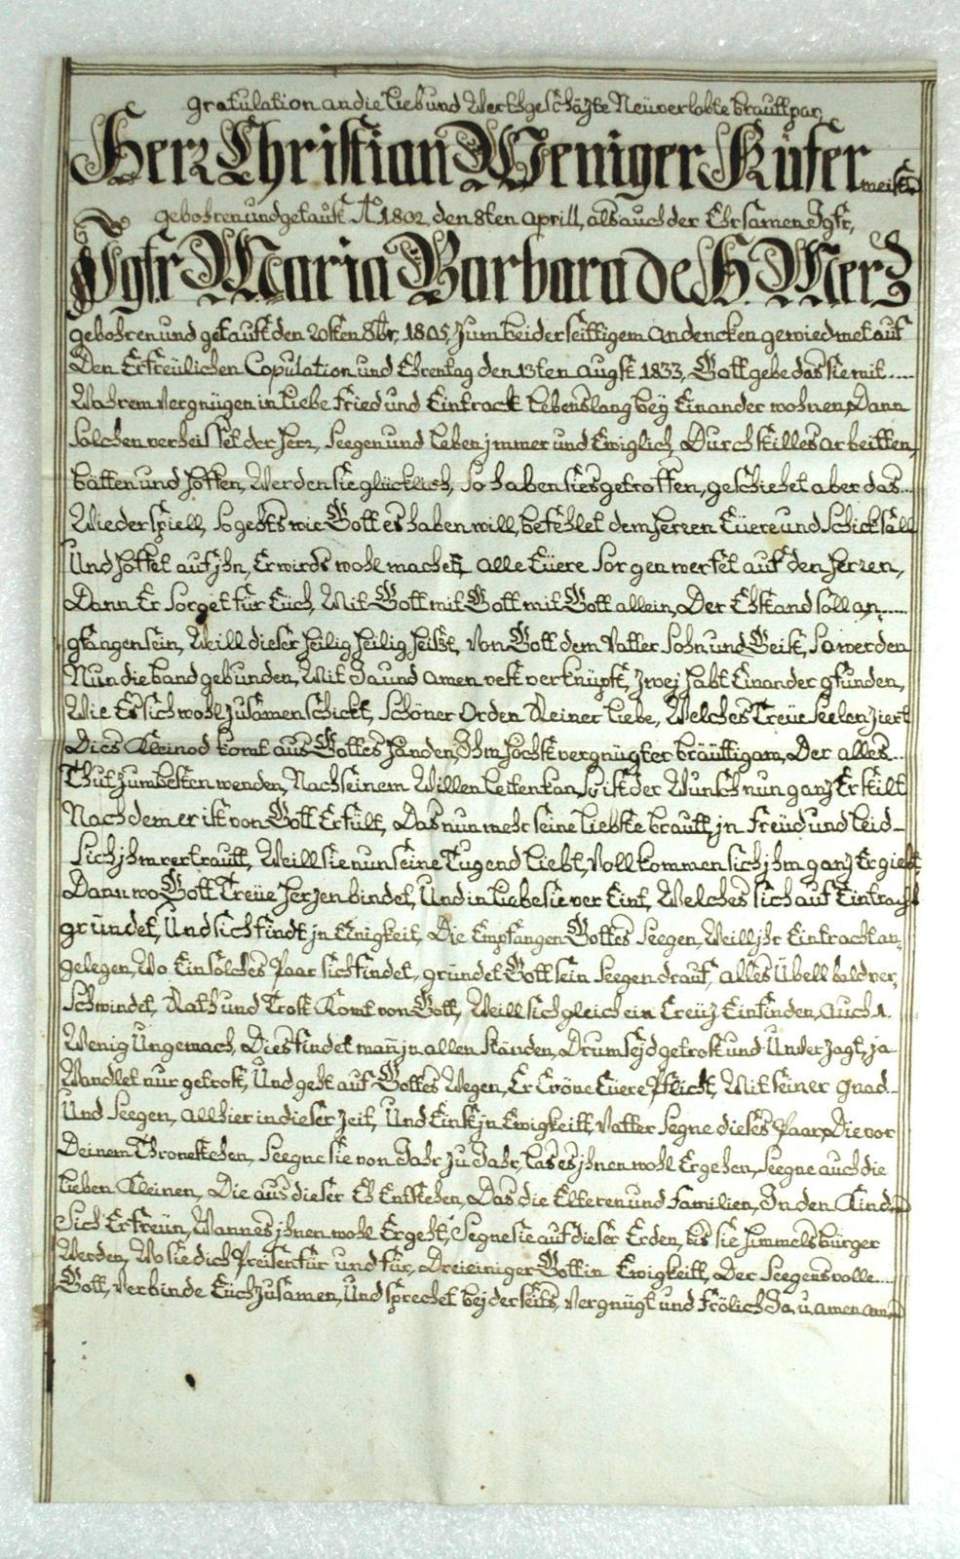 Gratulation an die lieb und Werthgeschäzte Neüverlobte brauttpar,
Herr Christian Weniger Küfer meist
gebohren und getauft Ao 1802, den 8ten aprill, als auch der Ehrsamen Jgfr,
Jgfr Maria Barbara de H. Merz
gebohren und getauft den 20ten 8br, 1805, Zum beiderseittigem andencken gewiedmet auf
Den Erfreülichen Copulation und Ehrentag den 13ten Augst 1833, Gott gebe das sie mit ....
Wahrem vergnügen in liebe fried und Eintrackt lebenslang bey Einander wohnen, Dann
Solchen verheisset der Herr, Seegen und leben jmmer und Ewiglich, Durch stilles arbeitten,
bätten und hoffen, Werden sie glücklich, So haben sies getroffen, geschiehet aber das...
Wiederspiell, So gehts wie Gott es haben will, befehlet dem Herren Eüere und Schicksäll
Und hoffet auf jhn, Er wirds wohl machen, alle Eüere Sorgen werfet auf den Herren,
Dann Er Sorget für Eüch, Mit Gott mit Gott mit Gott allein, Der Ehstand soll an......
gfangen sein, Weill dieser heilig heilig heist, Von Gott dem Vatter Sohn und Geist, So werden
Nun die band gebunden, Mit Ja und amen vest verknüpft, Zwej habt Einander gfunden,
Wie Es sich wohl zusamen schickt, Schöner Orden Reiner liebe, Welches Treüe Seelen ziert
Dies Kleinod komt aus Gottes händen, Ihm höchst vergnügter bräuttigam, Der alles...
Thut zum besten wenden, Nach seinem Willen leiten kan, So ist der Wunsch nun ganz Erstilt
Nach dem er ist von Gott Erfült, Das nun mehr seine liebste brautt, jn freüd und leid-
Sich jhm vertrautt, Weill sie nun seine Tugend liebt, Vollkommen sich jhm ganz Ergiebt
Dann wo Gott Treüe Herzen bindet, Und in liebe sie ver Eint, Welches sich auf Eintracht
gründet, Und sich findt jn Einigkeit, Die Empfangen Gottes Seegen, Weill jhr Eintracht an,
gelegen, Wo Ein solches Paar sich findet, gründet Gott sein Seegen drauf, alles Übell bald ver,
Schwindet, Rath und Trost Komt von Gott, Weill sich gleich ein Creüz Einfinden, Auch 1.
Wenig Ungemach, Dies findet mañ jn allen ständen, Drum sejd getrost und Unverzagt, ja
Wandlet nur getrost, Und geht auf Gottes Wegen, Er Cröne Eüere Pflicht, Mit seiner gnad-
Und Seegen, allhier in dieser Zeit, Und Einst jn Ewigkeitt, Vatter Segne dieses Paar, Die vor
Deinem Throne stehen, Seegne sie von Jahr zu Jahr, las es jhnen wohl Ergehen, Seegne auch die
lieben Kleinen, Die aus dieser Eh Entstehen, Das die Elteren und familien, In den Kind
Sich Erfreün, Wann es jhnen wohl Ergeht, Segne sie auf dieser Erden, bis sie himmelsbürger
Werden, Wo sie dich Preisen für und für, Dreieiniger Gott in Ewigkeitt, Der Seegensvolle....
Gott, Verbinde Eüch zusamen, Und sprechet beijderseits, Vergnügt und frölich Ja, u, amen am,